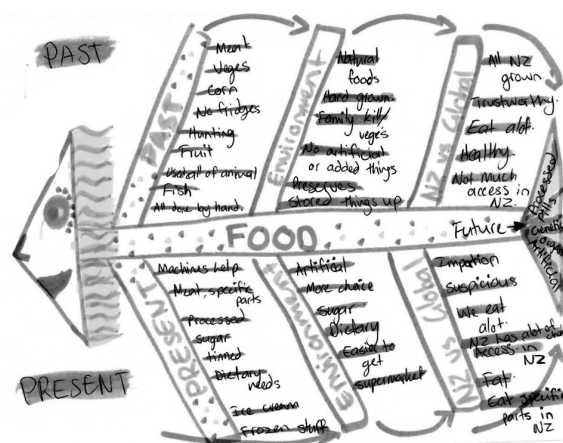 PAST
PAST
Meat
Veges
Corn
No fridges
Hunting
Fruit
Used all of animal
Fish
All done by hand.
Environment
Natural
foods
Hand grown.
Family kill/
veges
No artificial
or added things
Preserves
stored things up
NZ vs Global
All NZ
grown.
Trustworthy.
Eat alot.
Healthy.
Not much
access in
NZ.
FOOD
Future
Processed
pills
Genetic
PRESENT
PRESENT
Machines help
Meat, specific
parts
Processed
sugar
tinned
Dietary
needs
Ice cream
Frozen stuff
Environment
Artificial
More choice
Sugar
Dietary
Easier to
get
supermarket
NZ vs Global
Impation
Suspicious
We eat
alot.
NZ has alot of
Access in
NZ
Fat.
Eat specific
parts in
NZ